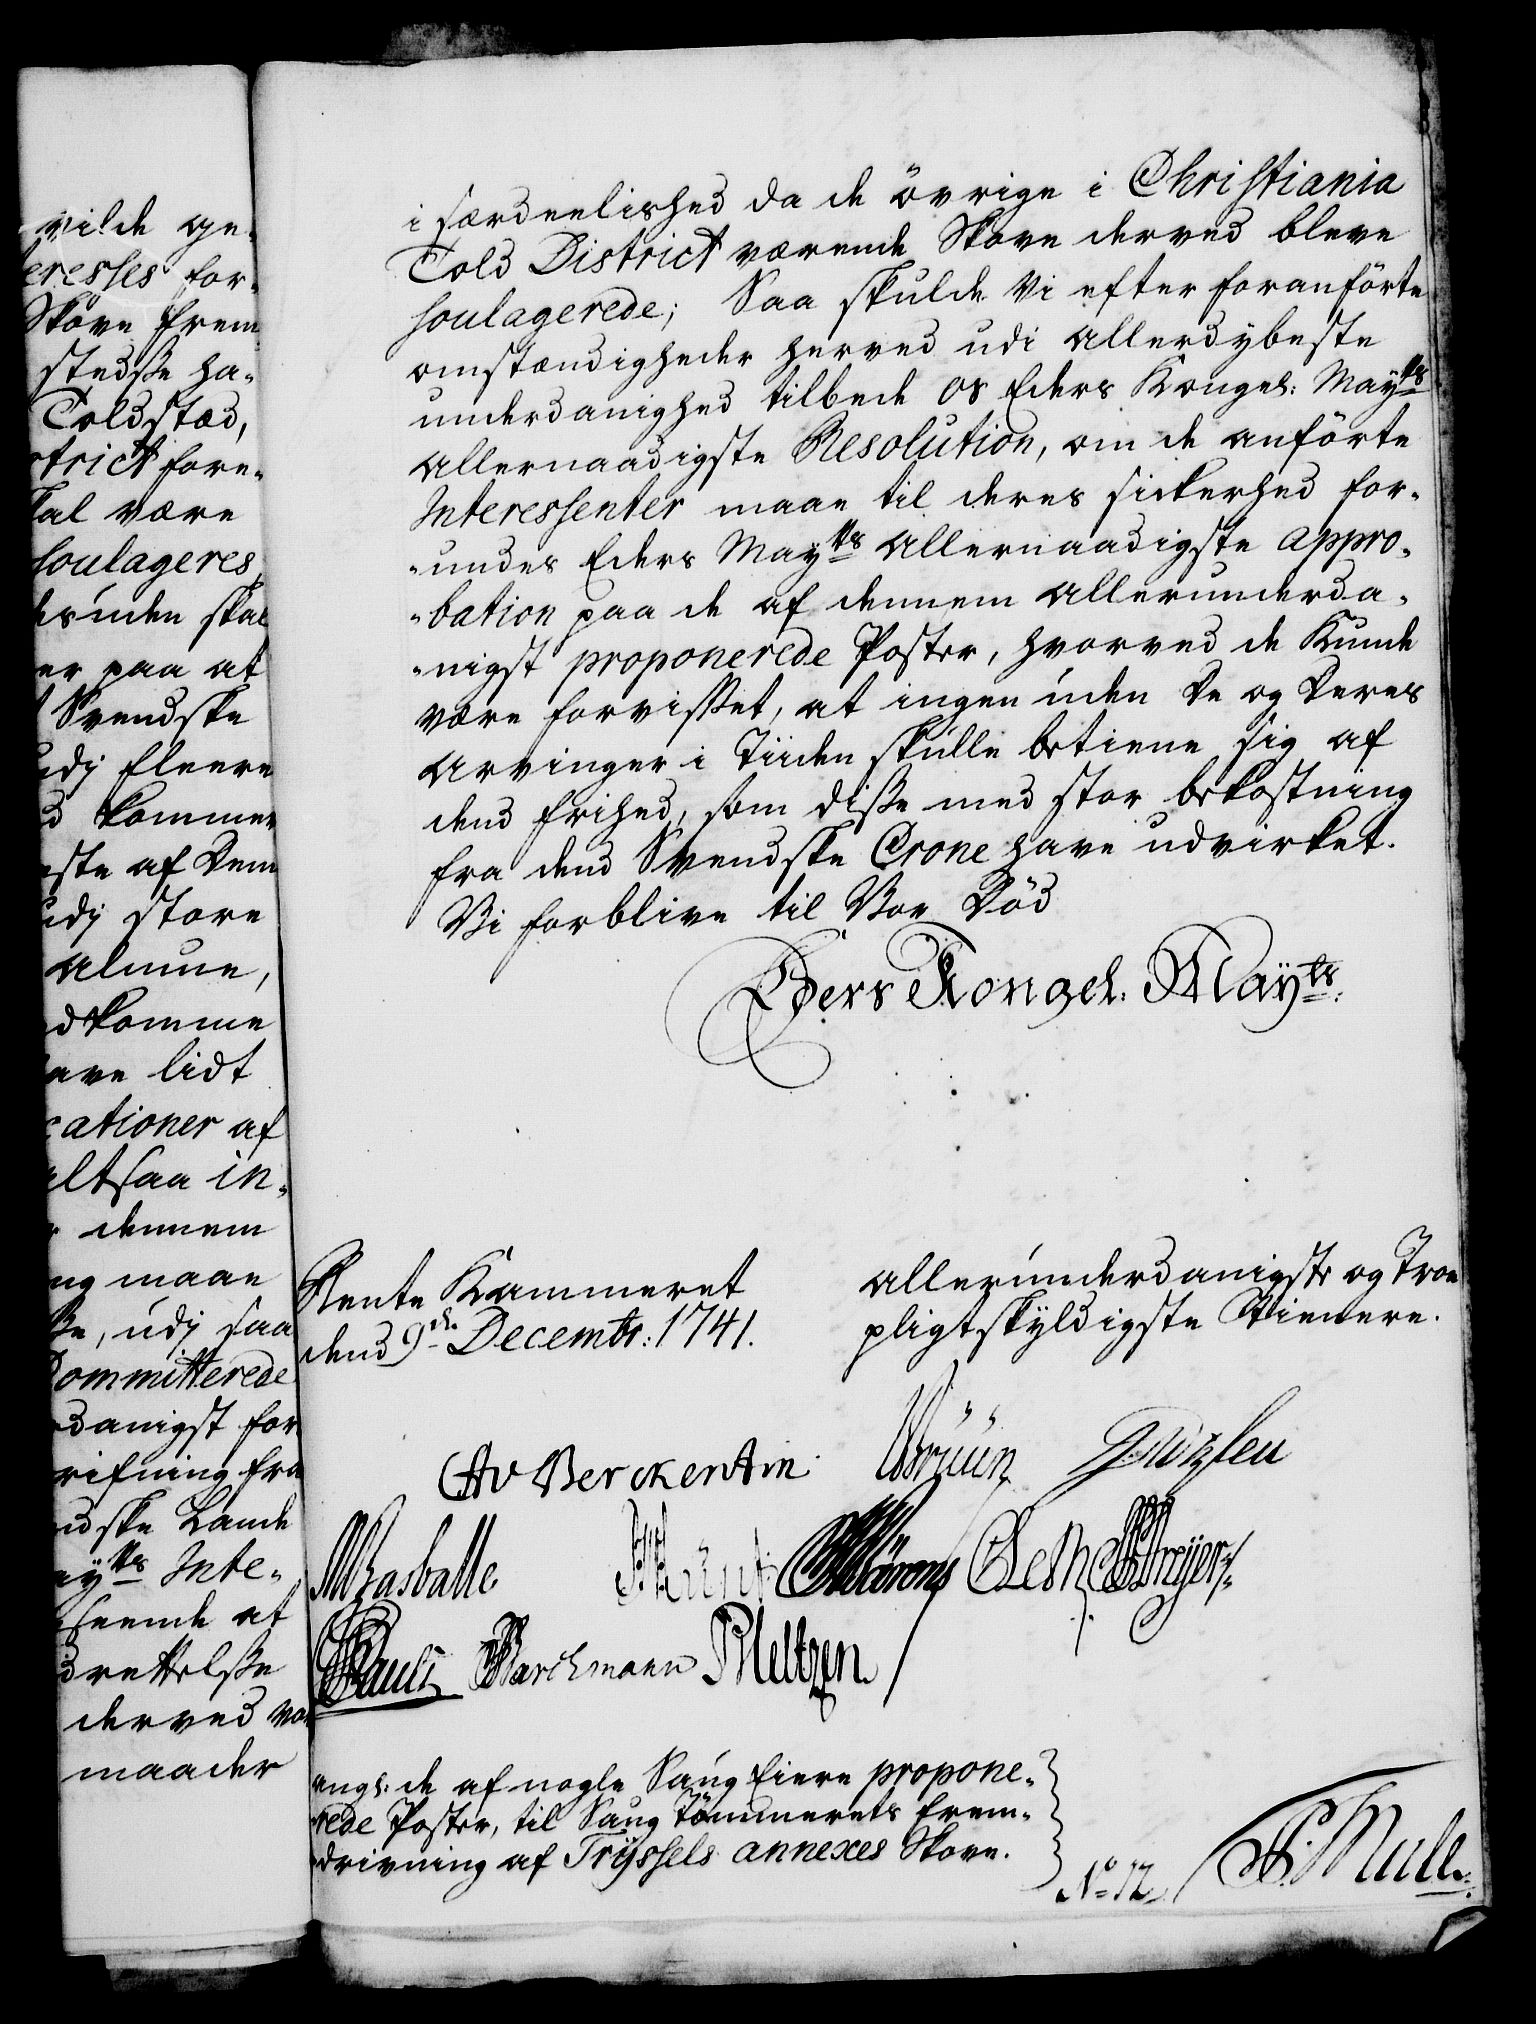 vilde ge-
eresses for-
Skove frem
stedsse ha-
Toldstæd,
strict fore-
kal være
soulageres,
des uden skal
er paa at
Svendske
udj fleere
d kommer
ste af dem
udj store
alnue,
dkomme
ave lidt
cationer af
altsaa in-
dennem
ng maae
sse, udj saa
Committerede
danigst for
rifning fra
dske Lande
ayts Inte-
seende at
drettelsse
derved vo
maader
i særdeelished da de övrige i Christiania
Told District værende Skove derved bleve
soulagerede; Saa skulde Vi efter foranförte
omstændigheder herved udi allerdybeste
underdanighed tilbede os Eders Kongel: Mayts
allernaadigste Resolution, om de anförte
Interessenter maae til deres sickerhed for-
-undes Eders Mayts allernaadigste appro-
-bation paa de af dennem allerunderda-
-nigst proponerede Poster, hvorved de Kunde
være forvisset, at ingen uden de og deres
arvinger i Tiiden skulle betiene sig af
dend frihed, som disse med stor bekostning
fra dend Svendske Crone have udvirket.
Vi forblive til Vor Död
Eders Kongel. Mayts:
Rente Kammeret
dend 9de Decembr: 1741.
allerunderdanigste og Troe
pligtskyldigste Tienere.
CAv Berckentin
Bruun
MBasballe
Pauli Barchmann PMeltzen
angl: de af nogle Saug Eiere propone-
rede Poster, til Saug Tömmerets frem-
drivning af Tryssels annexes Skove.
No 12 / Mule.